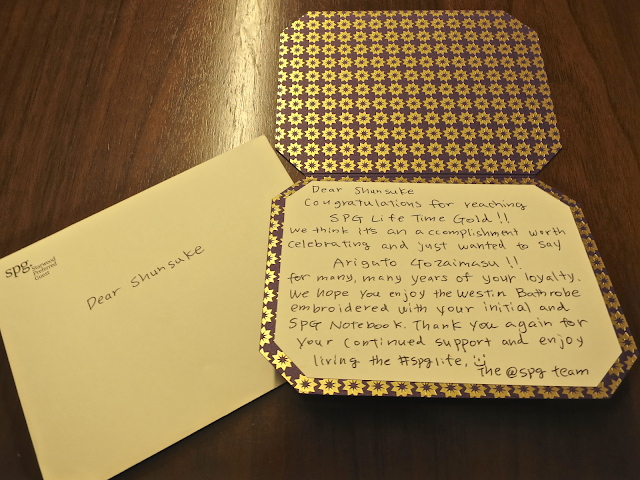 spg.
Starwood
Preferred
Guest
Dear Shunsuke
Dear Shunsuke
Congratulations for reaching
SPG Life Time Gold!!
we think it's an accomplishment worth
celebrating and just wanted to say
Arigato Gozaimasu!!
for many, many years of your loyalty.
We hope you enjoy the Westin Bathrobe
embroidered with your initial and
SPG Notebook. Thank you again for
your continued support and enjoy
living the #spglife, :)
The @spg team